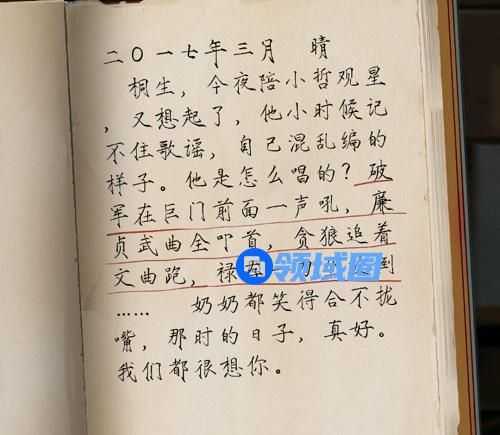 二〇一七年三月 晴
桐生，今夜陪小哲观星
，又想起了，他小时候记
不住歌谣，自己混乱编的
样子。他是怎么唱的？破
军在巨门前面一声吼，廉
贞武曲全叩首，贪狼追着
文曲跑，禄 到
领域圈
…… 奶奶都笑得合不拢
嘴，那时的日子，真好。
我们都很想你。